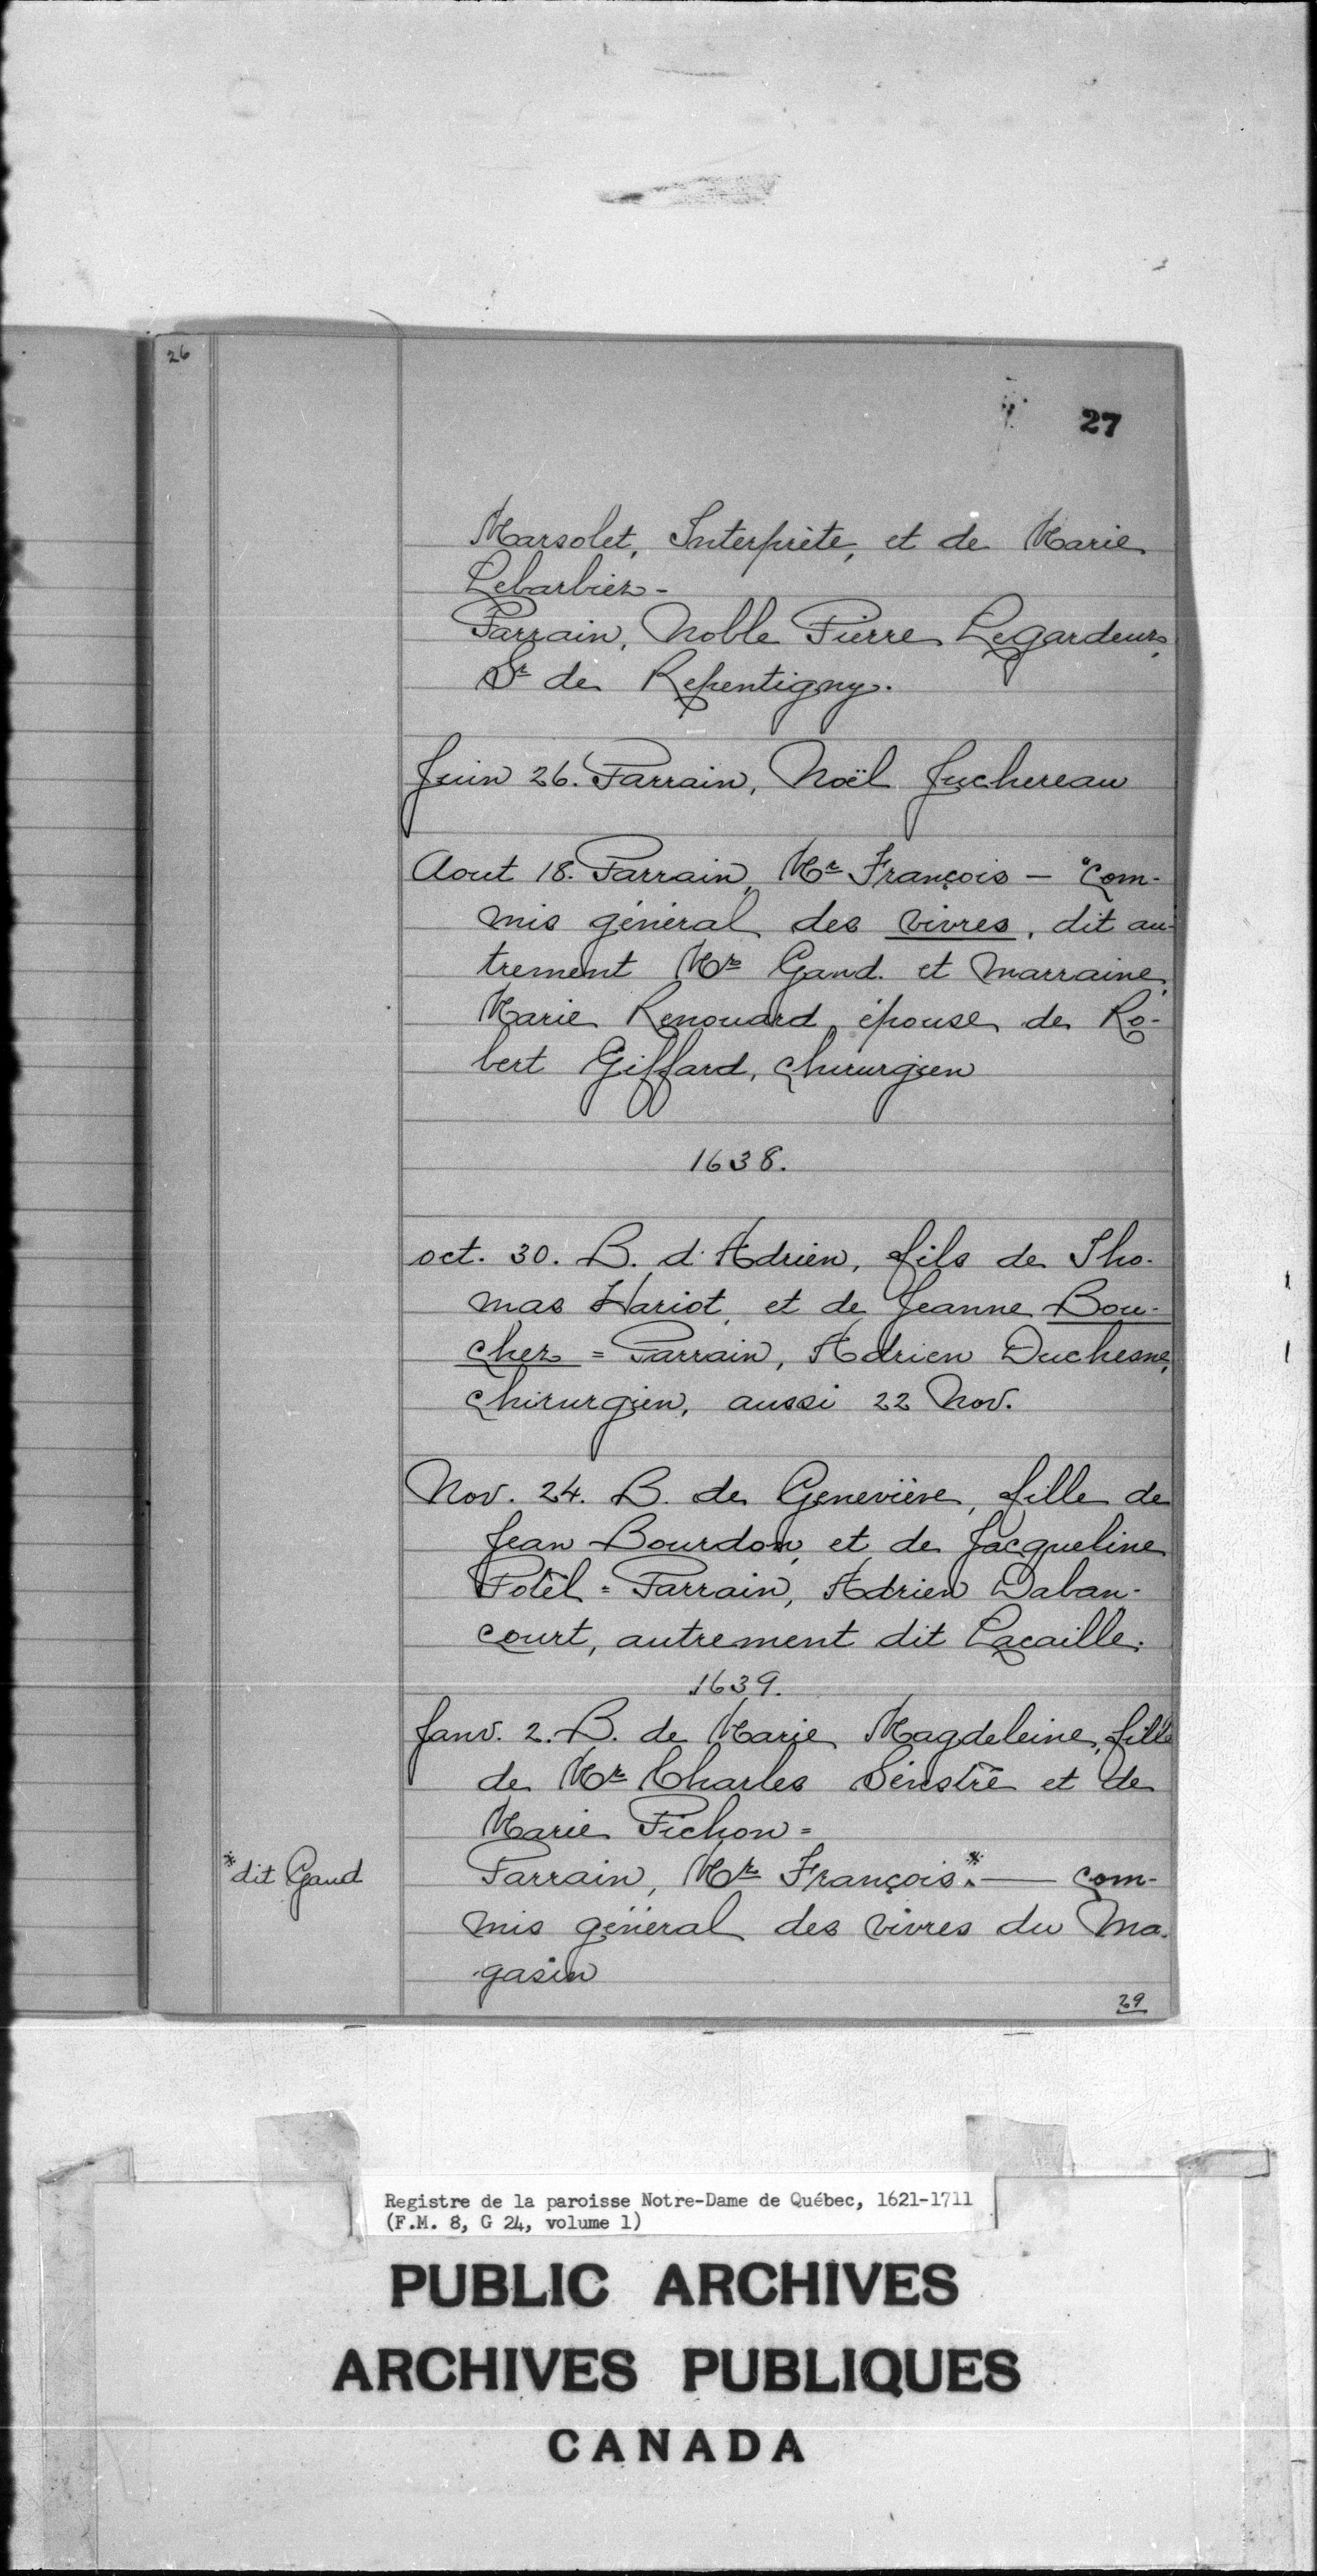 26
27
Marsolet, Interprète, et de Marie
Lebarbier -
Parrain, Noble Pierre Legardeur,
Sr de Repentigny.
Juin 26. Parrain, Noël Juchereau
Aout 18. Parrain, Mr François - "Com-
mis général des vivres, dit au-
trement Mr Gand. et Marraine,
Marie Renouard, épouse de Ro-
bert Giffard, chirurgien
1638.
oct. 30. B. d'Adrien, fils de Tho-
mas Hariot, et de Jeanne Bou-
cher = Parrain, Adrien Duchesne,
chirurgien, aussi 22 Nov.
Nov. 24. B. de Geneviève, fille de
Jean Bourdon, et de Jacqueline
Potêl = Parrain, Adrien Daban-
court, autrement dit Lacaille.
1639.
Janv. 2. B. de Marie Magdeleine, fille
de Mr Charles Sénstrê et de
Marie Pichon =
*dit Gand
Parrain, Mr François.* — com-
mis général des vivres du Ma-
gasin
29
Registre de la paroisse Notre-Dame de Québec, 1621-1711
(F.M. 8, G 24, volume 1)
PUBLIC ARCHIVES
ARCHIVES PUBLIQUES
CANADA